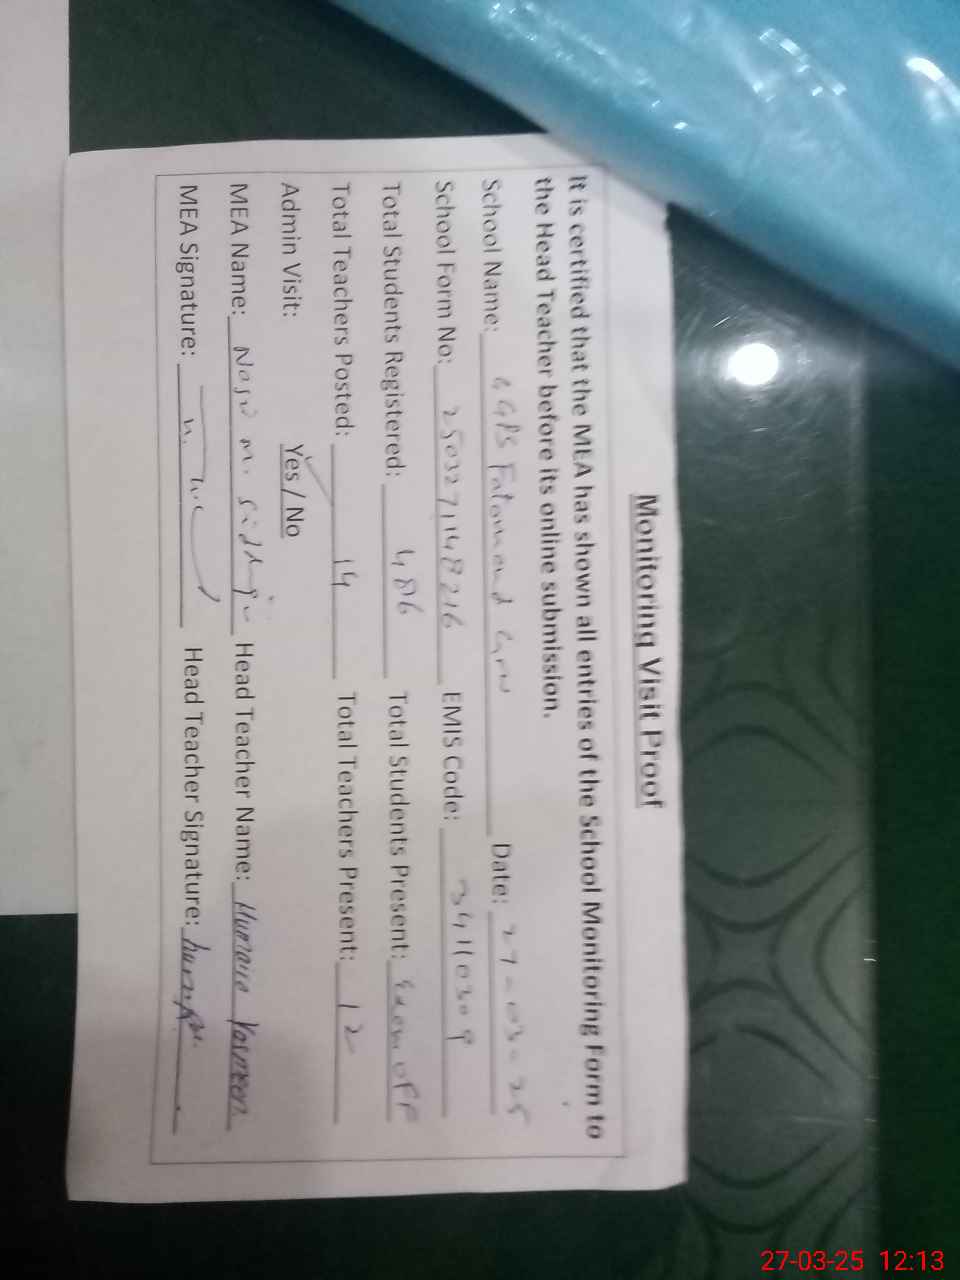 Monitoring Visit Proof
It is certified that the MEA has shown all entries of the School Monitoring Form to
the Head Teacher before its online submission.
School Name: GGPS Date: 27-03-25
School Form No: 2503271148216 EMIS Code: 34110309
Total Students Registered: 486 Total Students Present: Exam off
Total Teachers Posted: 14 Total Teachers Present: 12
Admin Visit: Yes / No
MEA Name: M. Siddiqui Head Teacher Name: Humaira Yasmeen
MEA Signature: Head Teacher Signature:
27-03-25 12:13